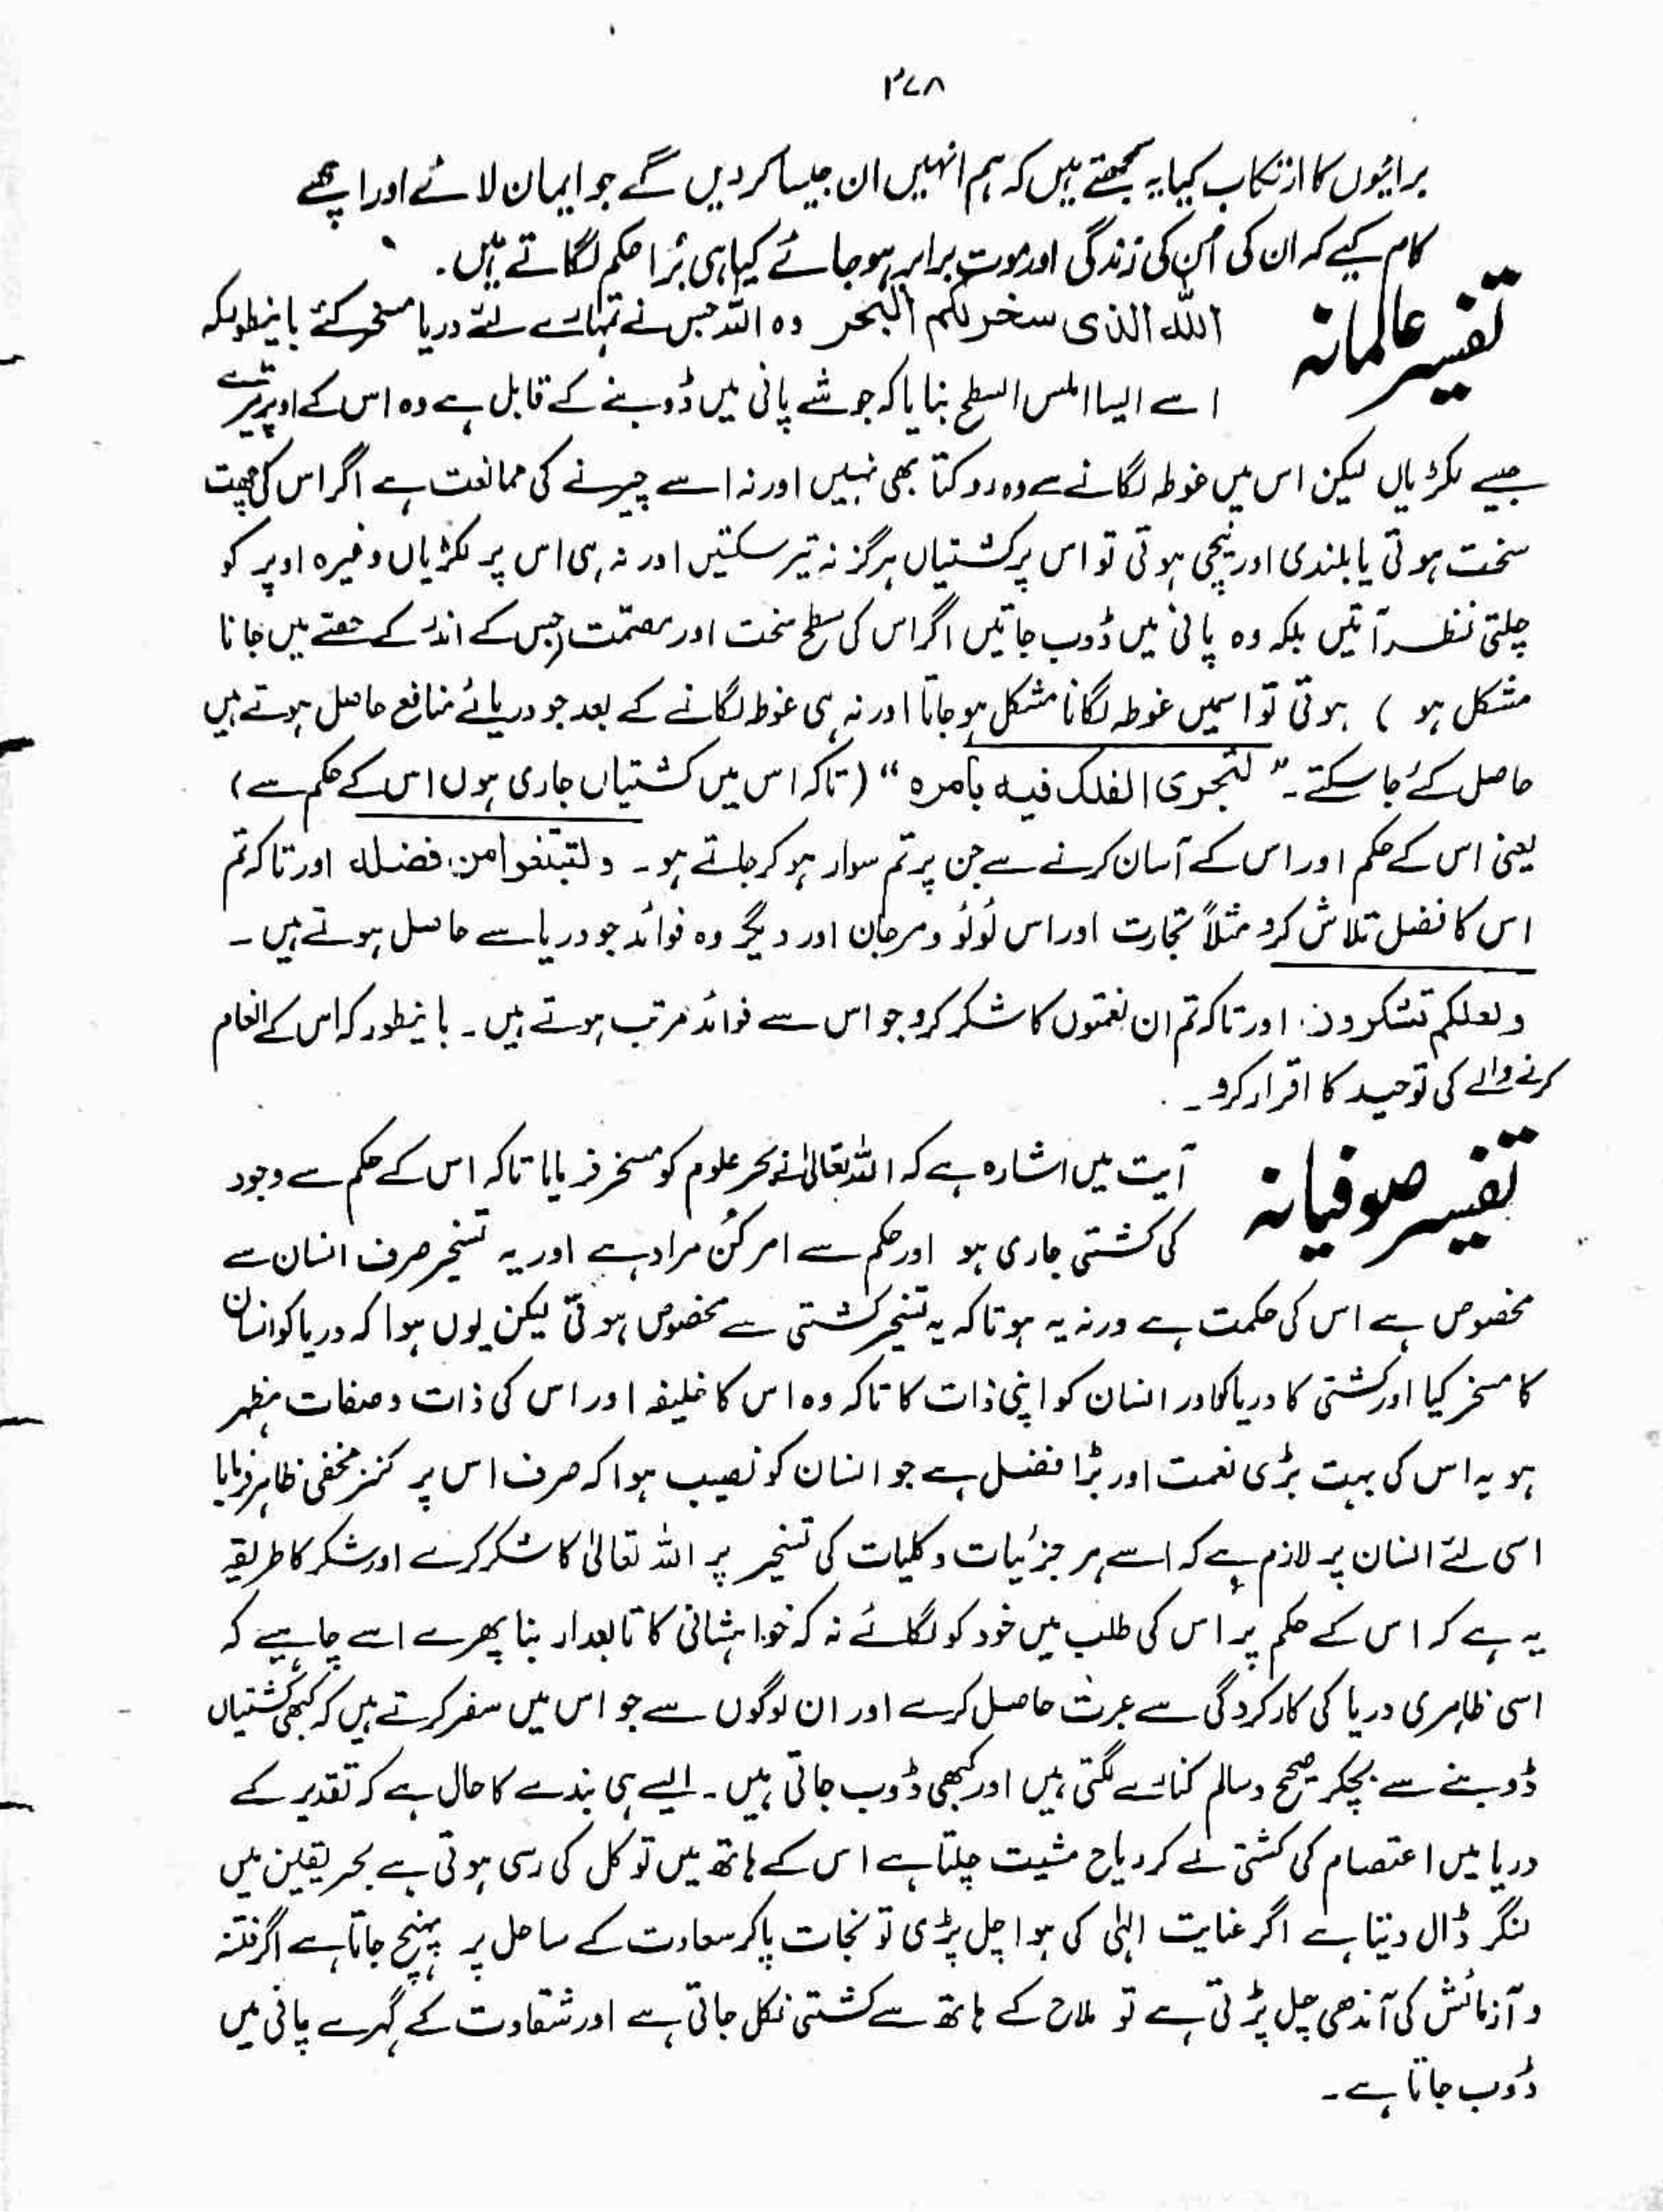 ۳۷۸
برائیوں کا ارتکاب کیا یہ سمجھتے ہیں کہ ہم انہیں ان جیسا کر دیں گے جو ایمان لائے اور اچھے
کام کیے کہ ان کی اُن کی زندگی اور موت برابر ہو جائے کیا ہی بُرا حکم لگاتے ہیں۔
تفسیر عالمانہ
اللہ الذی سخر لکم البحر وہ اللہ جس نے تمہارے لئے دریا مسخر کئے بایں طور کہ
اسے ایسا املس السطح بنایا کہ جو شے پانی میں ڈوبنے کے قابل ہے وہ اس کے اوپر تیرے
جیسے لکڑیاں لیکن اس میں غوطہ لگانے سے وہ روکتا بھی نہیں اور نہ اسے چیرنے کی ممانعت ہے اگر اس کی چھت
سخت ہوتی یا بلندی اور نیچی ہوتی تو اس پر کشتیاں ہرگز نہ تیر سکتیں اور نہ ہی اس پر لکڑیاں وغیرہ اوپر کو
چلتی نظر آتیں بلکہ وہ پانی میں ڈوب جاتیں اگر اس کی سطح سخت اور مصمت (جس کے اندر کے حصے میں جانا
مشکل ہو ) ہوتی تو اسمیں غوطہ لگانا مشکل ہو جاتا اور نہ ہی غوطہ لگانے کے بعد جو دریائے منافع حاصل ہوتے ہیں
حاصل کئے جا سکتے۔ ” لتجری الفلک فیہ بأمرہ “ (تاکہ اس میں کشتیاں جاری ہوں اس کے حکم سے)
یعنی اس کے حکم اور اس کے آسان کرنے سے جن پر تم سوار ہو کر جاتے ہو۔ ولتبتغوا من فضلہ اور تاکہ تم
اس کا فضل تلاش کرو مثلاً تجارت اور اس لُولُو و مرجان اور دیگر وہ فوائد جو دریا سے حاصل ہوتے ہیں۔
ولعلکم تشکرون۔ اور تاکہ تم ان نعمتوں کا شکر کرو جو اس سے فوائد مرتب ہوتے ہیں۔ بایں طور کہ اس کے انعام
کرنے والے کی توحید کا اقرار کرو۔
تفسیر صوفیانہ
آیت میں اشارہ ہے کہ اللہ تعالیٰ نے بحر علوم کو مسخر فرمایا تاکہ اس کے حکم سے وجود
کی کشتی جاری ہو اور حکم سے امر کُن مراد ہے اور یہ تسخیر صرف انسان سے
مخصوص ہے اس کی حکمت ہے ورنہ یہ ہوتا کہ یہ تسخیر کشتی سے مخصوص ہوتی لیکن یوں ہوا کہ دریا کو انسان
کا مسخر کیا اور کشتی کا دریا کا اور انسان کو اپنی ذات کا تاکہ وہ اس کا خلیفہ اور اس کی ذات و صفات مظہر
ہو یہ اس کی بہت بڑی نعمت اور بڑا فضل ہے جو انسان کو نصیب ہوا کہ صرف اس پر کنز مخفی ظاہر فرمایا
اسی لئے انسان پر لازم ہے کہ اسے ہر جزئیات و کلیات کی تسخیر پر اللہ تعالیٰ کا شکر کرے اور شکر کا طریقہ
یہ ہے کہ اس کے حکم پر اس کی طلب میں خود کو لگائے نہ کہ خواہشانی کا تابعدار بنا پھرے اسے چاہیے کہ
اسی ظاہری دریا کی کارکردگی سے عبرت حاصل کرے اور ان لوگوں سے جو اس میں سفر کرتے ہیں کہ کبھی کشتیاں
ڈوبنے سے بچکر صحیح و سالم کنارے لگتی ہیں اور کبھی ڈوب جاتی ہیں۔ ایسے ہی بندے کا حال ہے کہ تقدیر کے
دریا میں اعتصام کی کشتی لے کر ریاح مشیت چلتا ہے اس کے ہاتھ میں توکل کی رسی ہوتی ہے بحر یقین میں
لنگر ڈال دیتا ہے اگر عنایت الٰہی کی ہوا چل پڑی تو نجات پاکر سعادت کے ساحل پر پہنچ جاتا ہے اگر فتنہ
و آزمائش کی آندھی چل پڑتی ہے تو ملاح کے ہاتھ سے کشتی نکل جاتی ہے اور شقاوت کے گہرے پانی میں
ڈوب جاتا ہے۔